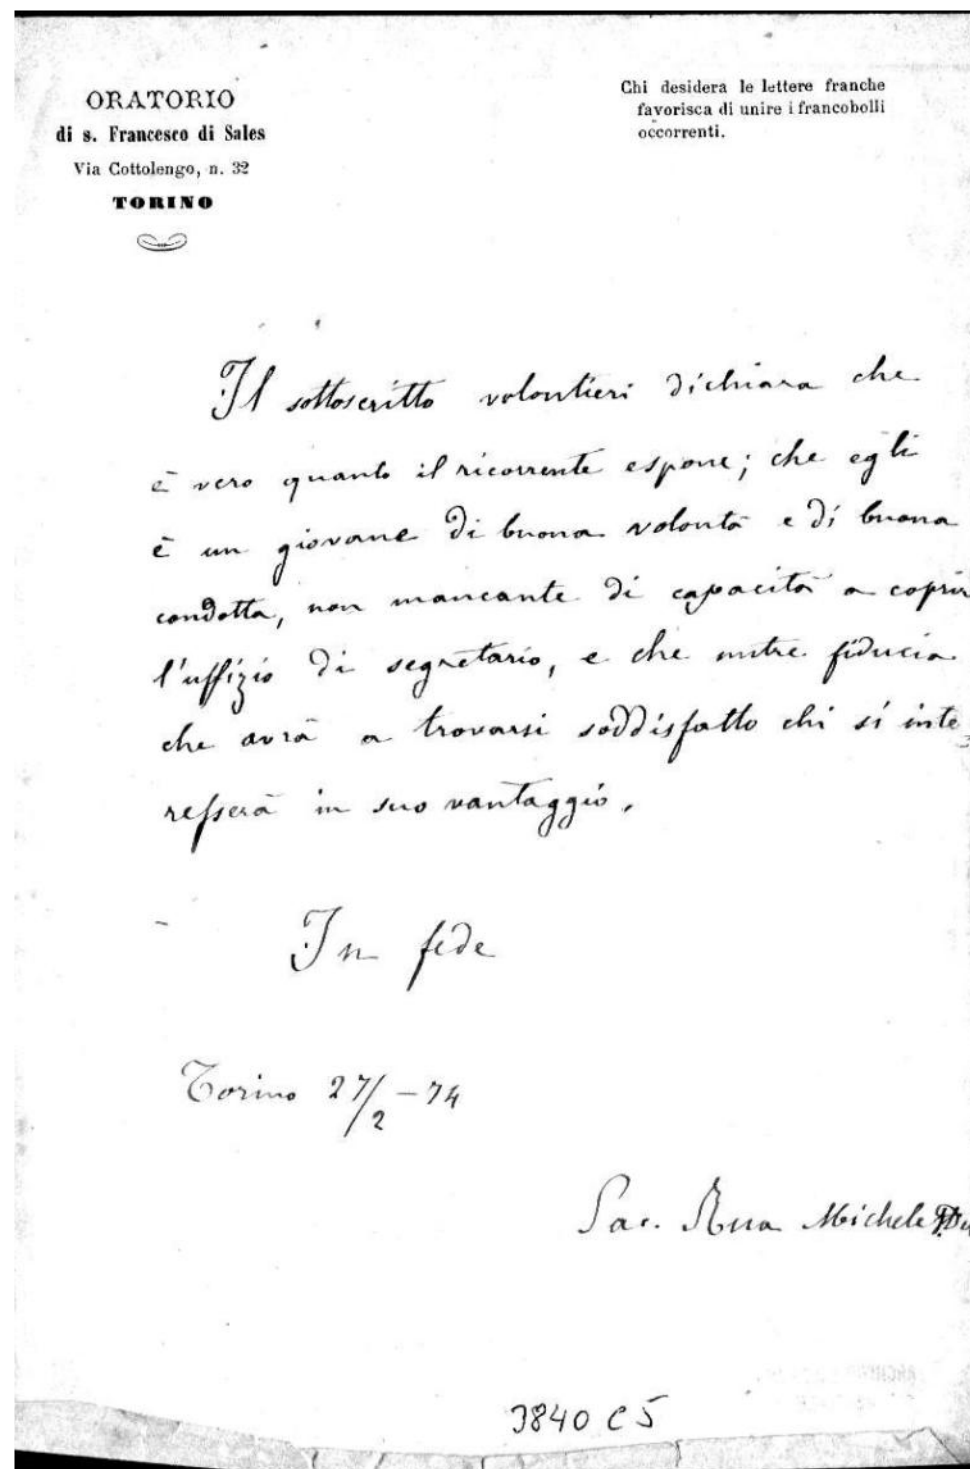 ORATORIO
di s. Francesco di Sales
Via Cottolengo, n. 32
TORINO
Chi desidera le lettere franche
favorisca di unire i francobolli
occorrenti.
Il sottoscritto volontieri dichiara che
è vero quanto il ricorrente espone; che egli
è un giovane di buona volontà e di buona
condotta, non mancante di capacità a coprir
l'uffizio di segretario, e che nutre fiducia
che avrà a trovarsi soddisfatto chi si inte
resserà in suo vantaggio.
In fede
Torino 27/2 - 74
Sac. Rua Michele
3840 C5